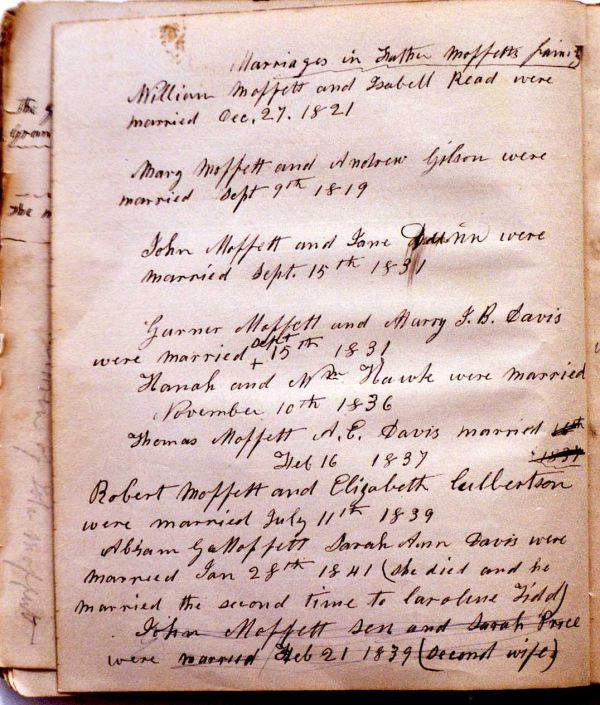 Marriages in Father Moffetts family
William Moffett and Isabell Read were
married Dec. 27. 1821
Mary Moffett and Andrew Gilson were
married Sept 9th 1819
John Moffett and Jane were
married Sept. 15th 1831
Garner Moffett and Marry J. B. Davis
were married Sept 15th 1831
Hanah and Wm Hawk were married
November 10th 1836
Thomas Moffett A. E. Davis married 16th
Feb 16 1837 1837
Robert Moffett and Elizabeth Culbertson
were married July 11th 1839
Abham Moffett Sarah Ann Davis were
married Jan 28th 1841 (she died and he
married the second time to Caroline Kidd)
John Moffett Sen and Sarah Price
were married Feb 21 1839 (second wife)
the
the
Moffett